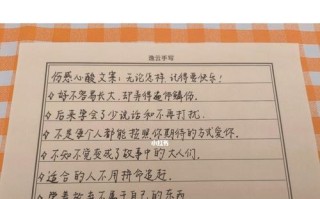 逸云手写
伤感心酸文案:无论怎样,记得要快乐!
好不容易长大,却弄得遍体鳞伤。
后来学会了少说话和不再打扰。
不是每个人都能按照你期待的方式爱你。
小红书
不知不觉变成了故事中的大人们。
适合的人不用拼命追赶。
属于自己的东西